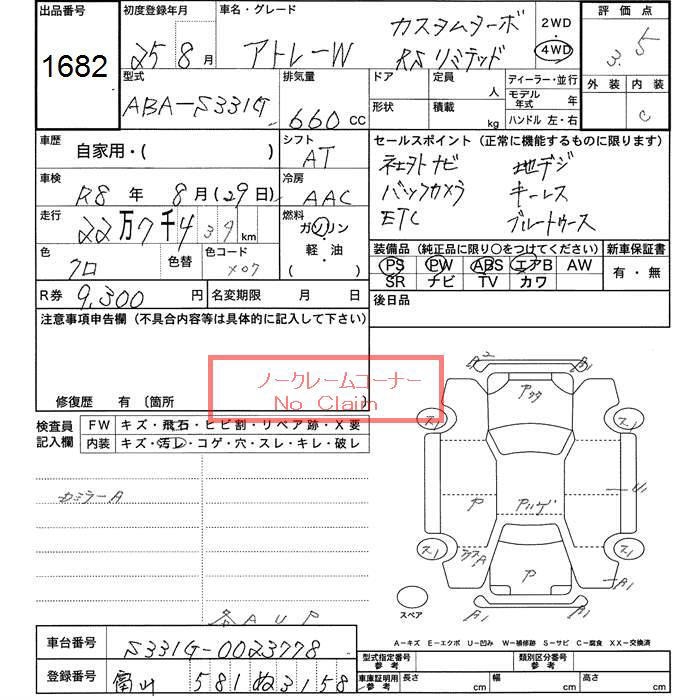 出品番号
1682
初度登録年月
25 8月
車名・グレード
アトレーW
カスタムターボ
RS リミテッド
2WD
4WD
評価点
3.5
外装 内装
C
型式
ABA-S331G
排気量
660 CC
ドア
形状
定員 人
積載 kg
ディーラー・並行
モデル年式 年
ハンドル 左・右
車歴
自家用・( )
シフト
AT
セールスポイント(正常に機能するものに限ります)
社外ナビ 地デジ
バックカメラ キーレス
ETC ブルートゥース
車検
R8年 8月(29日)
冷房
AAC
走行
22万7千439km
燃料
ガソリン
・
軽・油
( )
色
クロ
色替
色コード
X07
装備品(純正品に限り○をつけてください)
新車保証書
PS PW ABS エアB AW
SR ナビ TV カワ
有・無
R券 9,300円
名変期限 月 日
後日品
注意事項申告欄(不具合内容等は具体的に記入して下さい)
ノークレームコーナー
No Claim
修復歴 有〔箇所
検査員記入欄
FW キズ・飛石・ヒビ割・リペア跡・X要
内装 キズ・汚レ・コゲ・穴・スレ・キレ・破レ
カミラーA
各AUP
アゲ
ス1
ス1
P
アルゲ
U1
ス1
ス1
P
A1
A1
A1
スペア
A-キズ E-エクボ U-凹み W-補修跡 S-サビ C-腐食 XX-交換済
車台番号
S331G-0023778
登録番号
富山 581 ぬ 3158
型式指定番号
参考
類別区分番号
参考
車庫証明用
参考
長さ cm
幅 cm
高さ cm